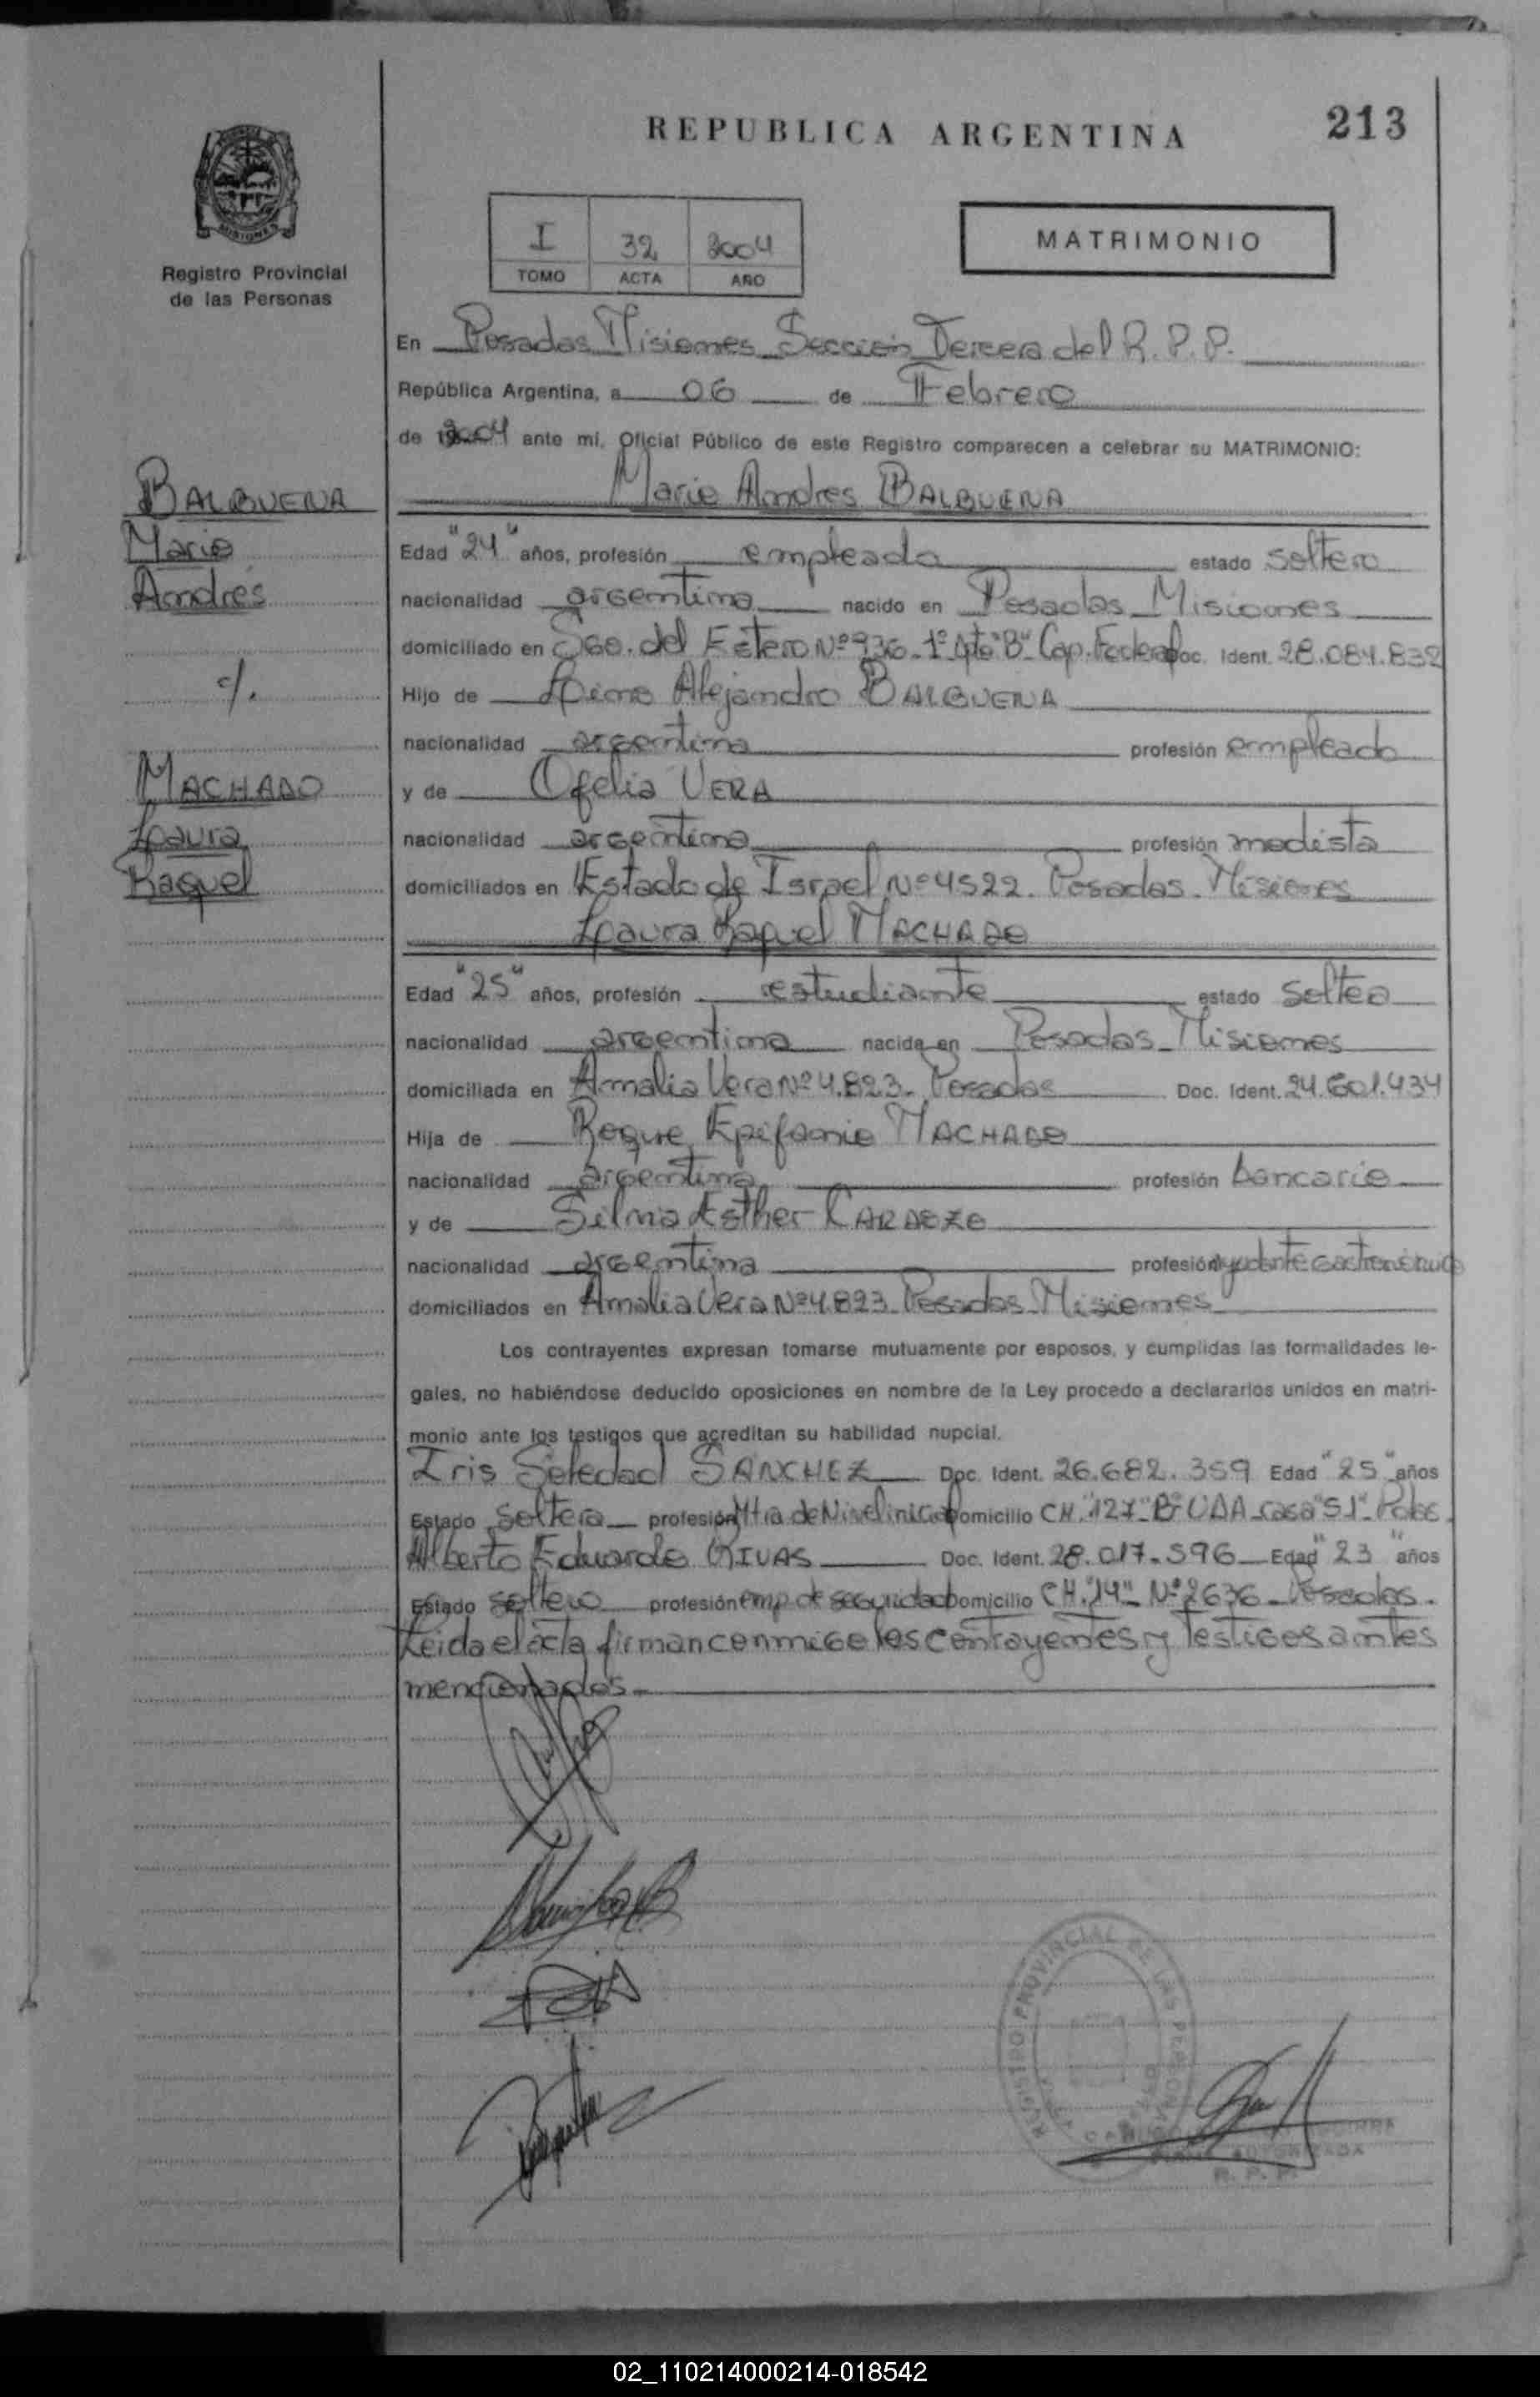 REPUBLICA ARGENTINA
213
MISIONES
Registro Provincial
de las Personas
I 32 2004
TOMO ACTA AÑO
MATRIMONIO
En Posadas Misiones Sección Tercera del R.P.P.
República Argentina, a 06 de Febrero
de 2004 ante mí, Oficial Público de este Registro comparecen a celebrar su MATRIMONIO:
BALBUENA
Mario
Andrés
c/.
MACHADO
Laura
Raquel
Mario Andres BALBUENA
Edad "24" años, profesión empleado estado soltero
nacionalidad argentina nacido en Posadas Misiones
domiciliado en Sgo. del Estero Nº 936 - 1º dto "B" Cap. Federal Doc. Ident. 28.084.832
Hijo de Alejandro BALBUENA
nacionalidad argentina profesión empleado
y de Ofelia VERA
nacionalidad argentina profesión modista
domiciliados en Estado de Israel Nº 4522. Posadas. Misiones
Laura Raquel MACHADO
Edad "25" años, profesión estudiante estado soltera
nacionalidad argentina nacida en Posadas - Misiones
domiciliada en Amalia Vera Nº 4.823 - Posadas Doc. Ident. 24.601.434
Hija de Roque Epifanio MACHADO
nacionalidad argentina profesión bancario
y de Silvia Esther CARDOZO
nacionalidad argentina profesión ayudante gastronómico
domiciliados en Amalia Vera Nº 4.823 - Posadas - Misiones
Los contrayentes expresan tomarse mutuamente por esposos, y cumplidas las formalidades le-
gales, no habiéndose deducido oposiciones en nombre de la Ley procedo a declararlos unidos en matri-
monio ante los testigos que acreditan su habilidad nupcial.
Iris Soledad SANCHEZ Doc. Ident. 26.682.359 Edad "25" años
Estado soltera profesión Mtra de Nivel inicial Domicilio CH. "127" Bº UDA casa "51" Pdas.
Alberto Eduardo RIVAS Doc. Ident. 28.017.596 Edad "23" años
Estado soltero profesión emp de seguridad Domicilio CH. "14" Nº 2636 - Posadas.
Leida el acta firman conmigo los contrayentes y testigos antes
mencionados.-
REGISTRO PROVINCIAL DE LAS PERSONAS
AUTORIZADA
R. P. P.
02_110214000214-018542